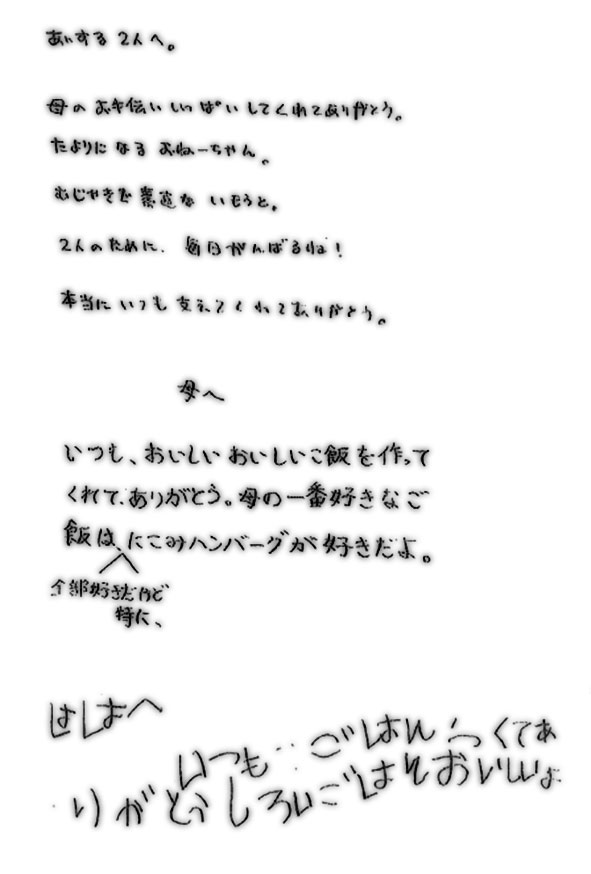 あいする 2人へ。
母の お手伝い いっぱい してくれてありがとう。
たよりに なる おねーちゃん。
むじゃきで 素直な いもうと。
2人のために、毎日がんばるね!
本当に いつも 支えてくれてありがとう。
母へ
いつも、おいしいおいしいご飯を作って
くれて、ありがとう。母の一番好きなご
飯は、にこみハンバーグが好きだよ。
全部好きだけど
特に、
ははへ
いつも ごはんつくてあ
りがとうしろいごはんおいしいよ